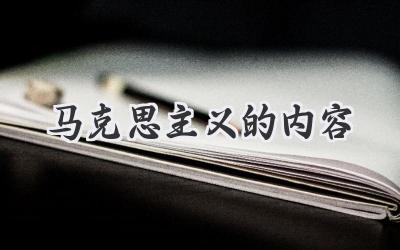 马克思主义的内容